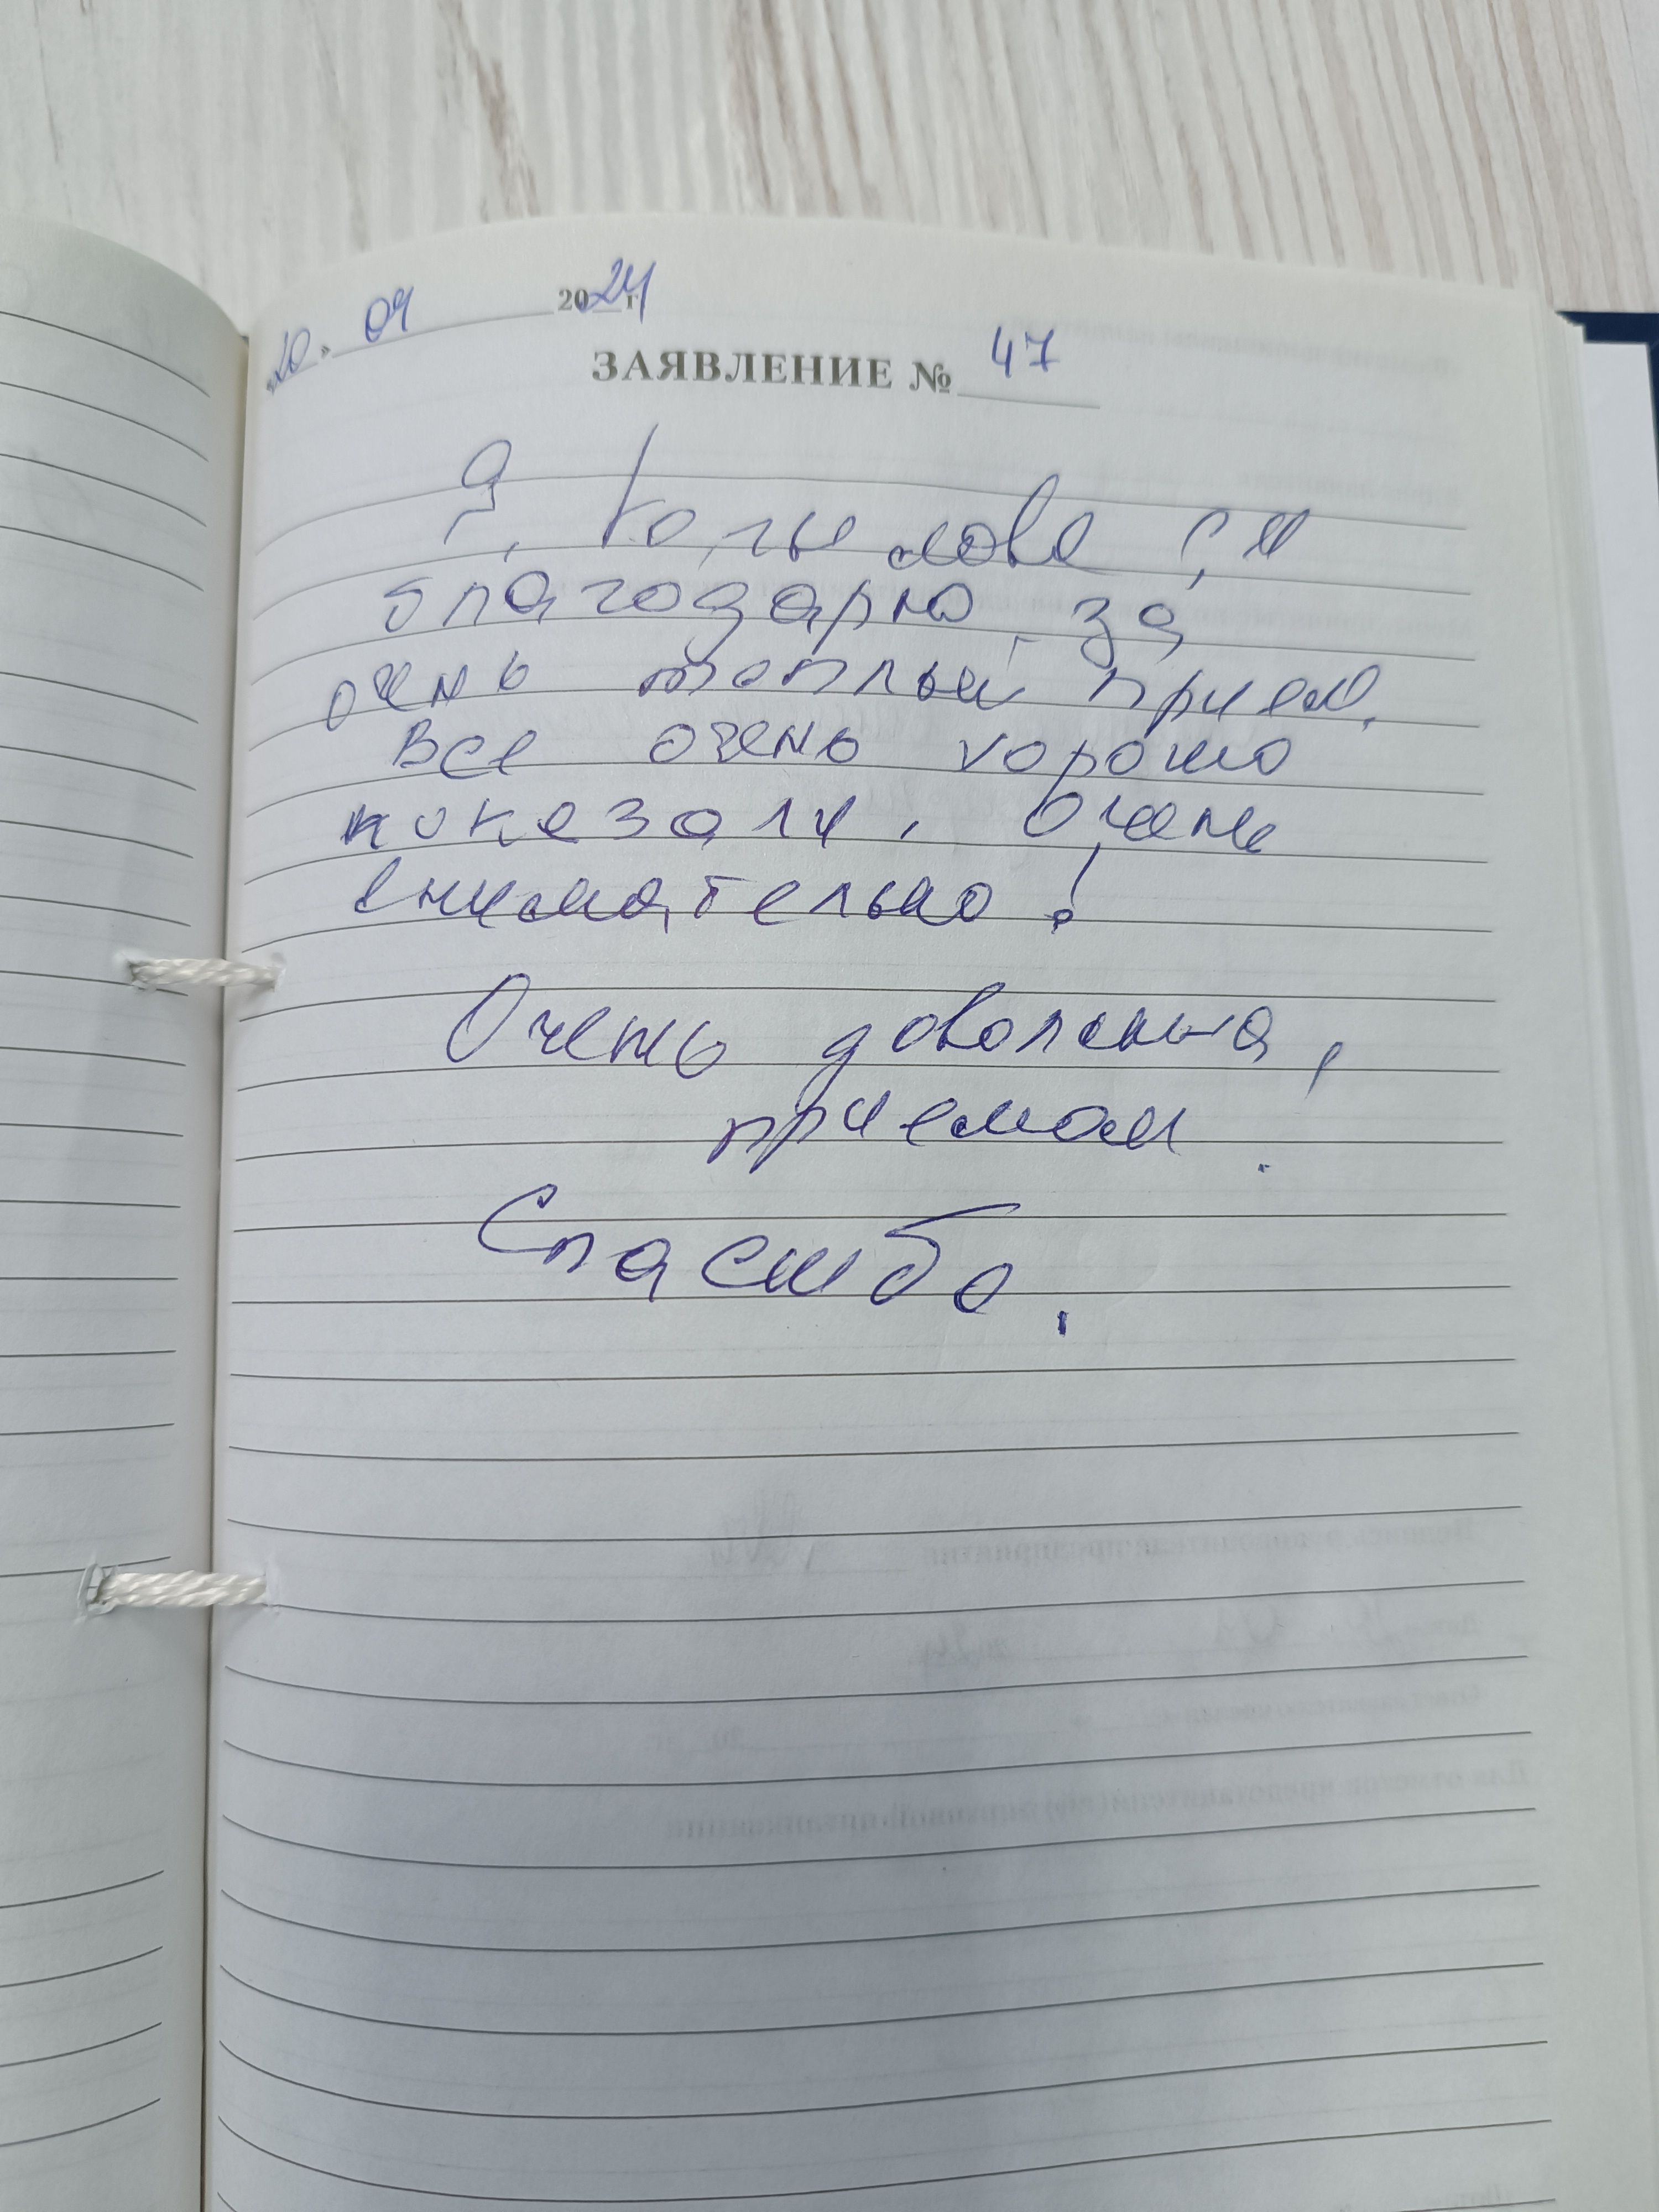 «20» 04 2024 г
ЗАЯВЛЕНИЕ № 47
Я,
благодарю за
очень теплый прием.
Все очень хорошо
показали. Очень
внимательно!
Очень довольна,
приемом.
Спасибо.